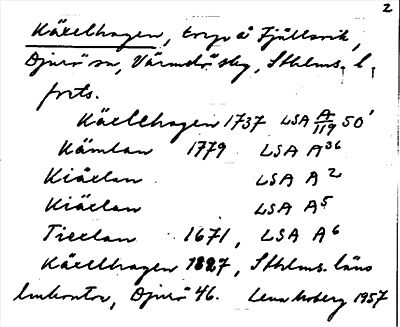 2
Käxelhagen, torp å Fjällsvik,
Djurö sn, Värmdö skg, Sthlms. l,
forts.
Käxelhagen 1737 LSA A/119 50'
Kämlan 1779 LSA A36
Kiäxlan LSA A2
Kiäxlan LSA A5
Tiexlan 1671, LSA A6
Käxelhagen 1827, Sthlms. läns
lmkontor, Djurö 46. Lena Moberg 1957